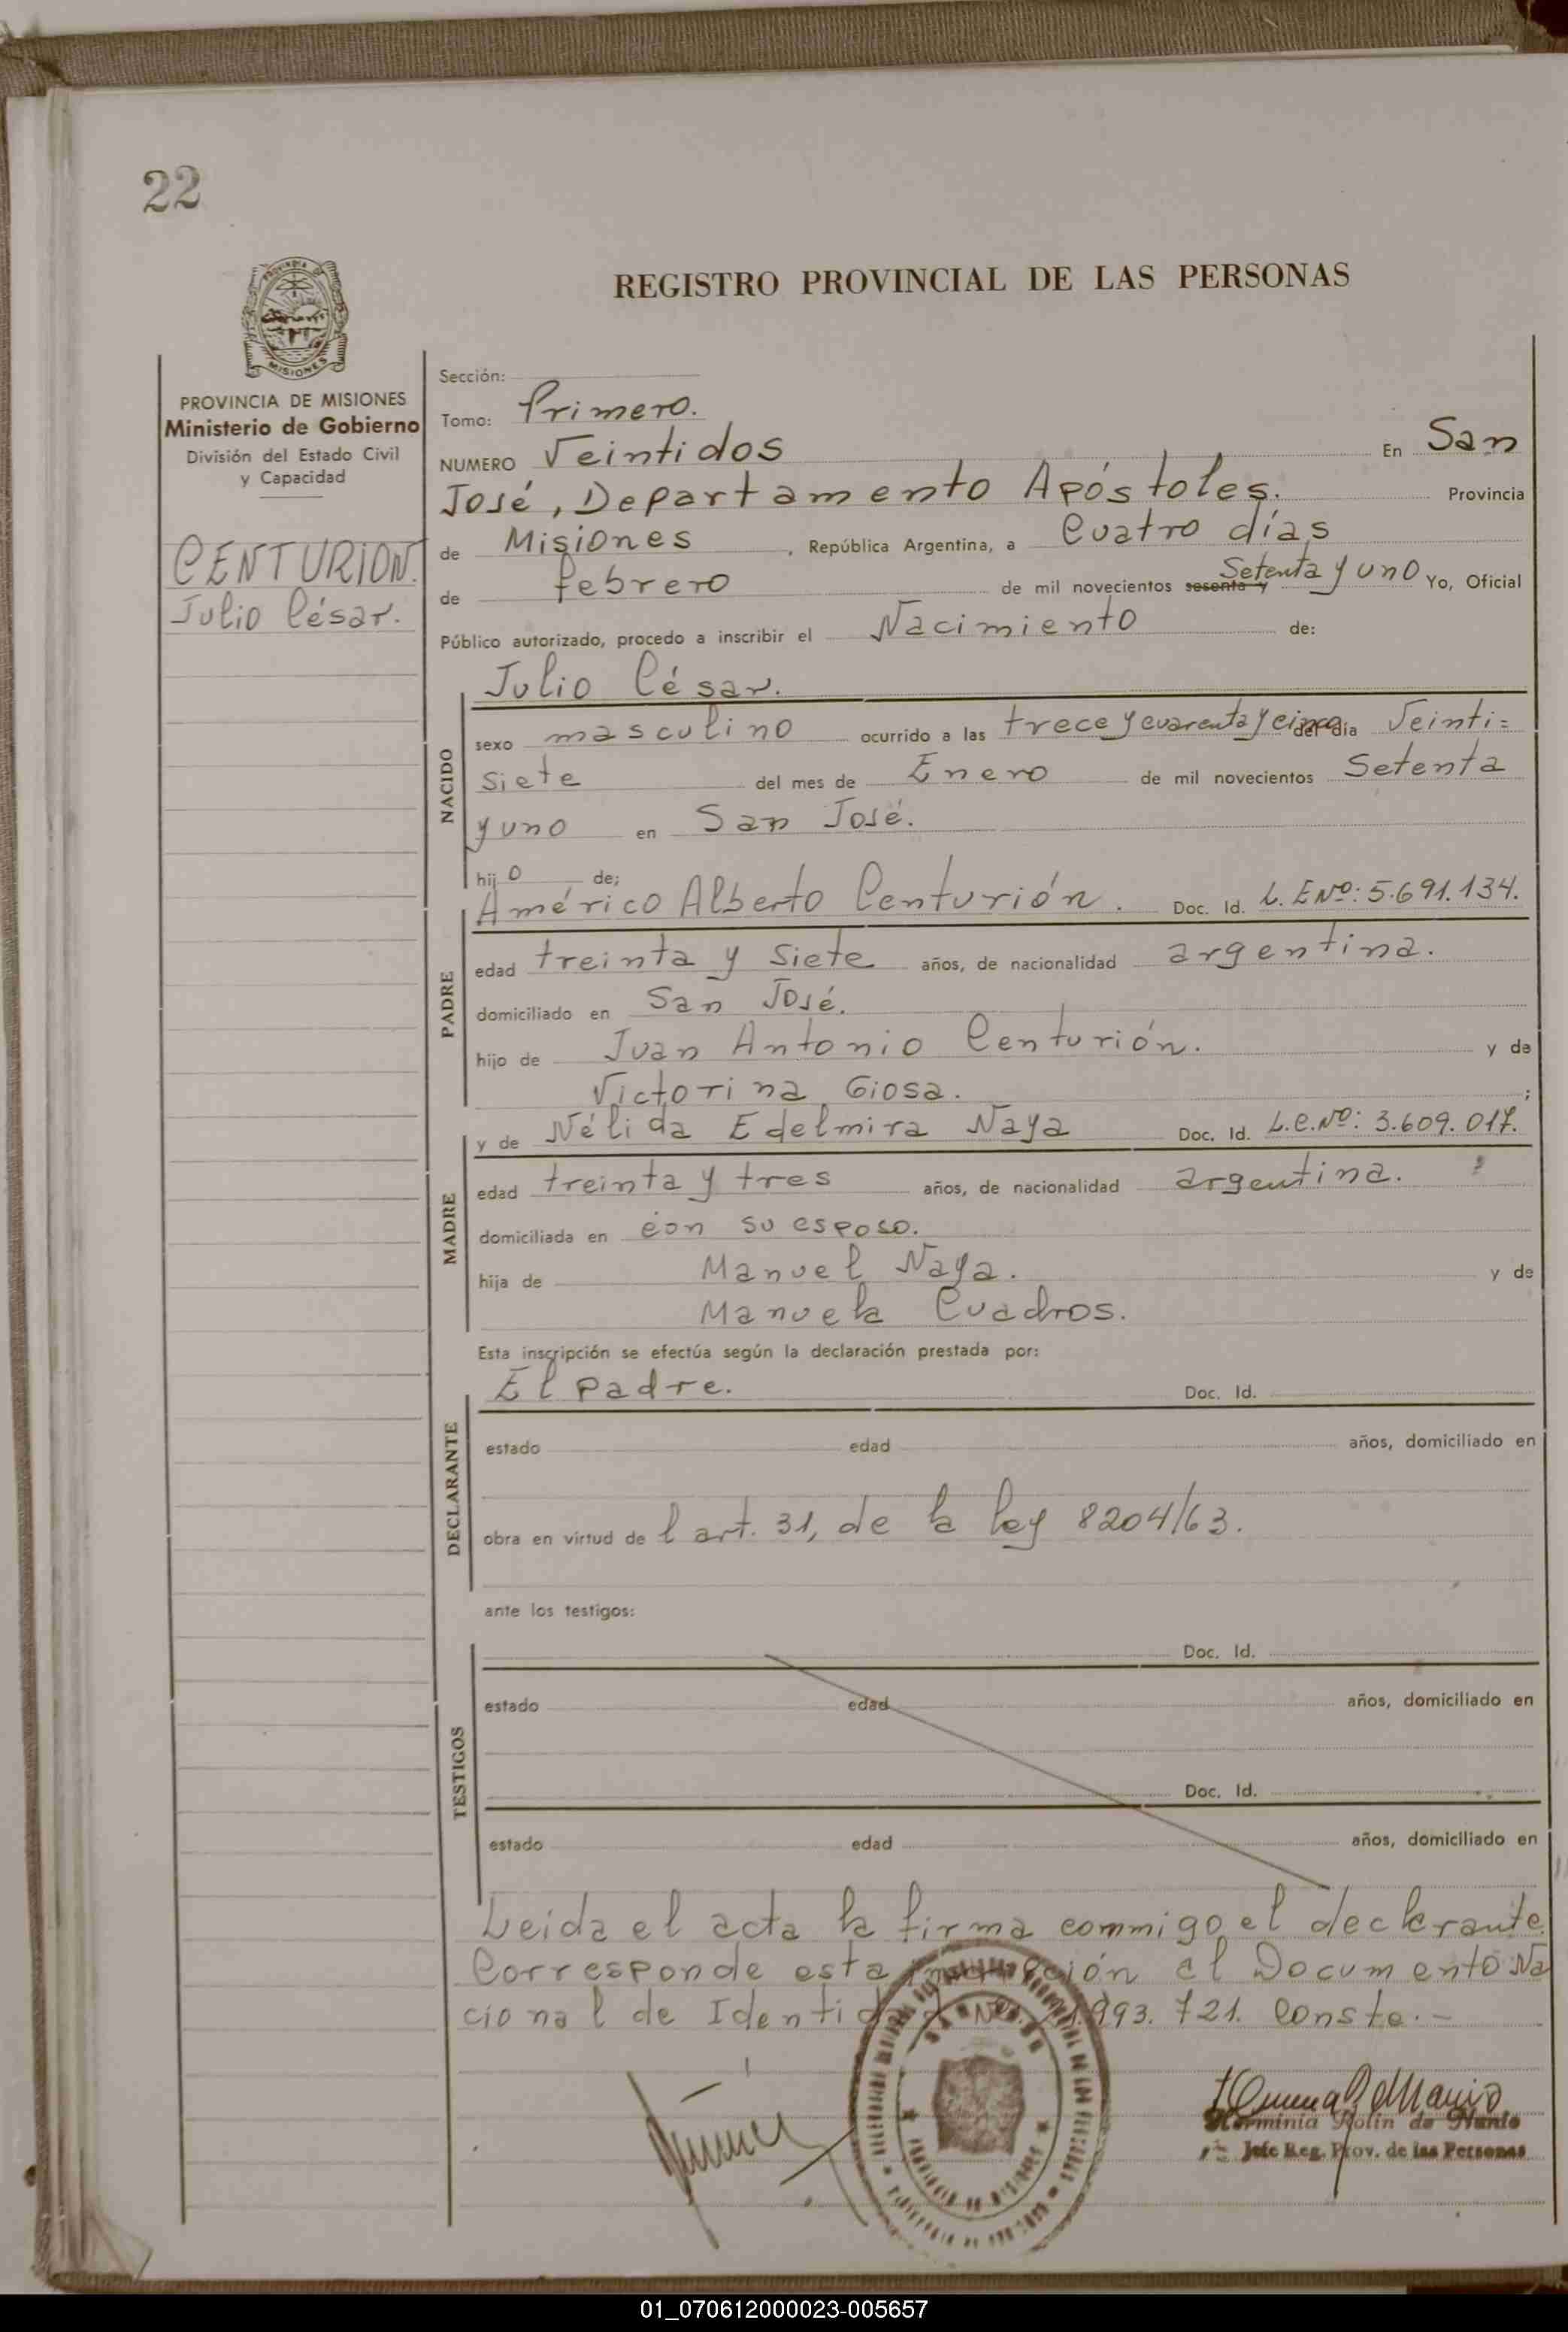 22
REGISTRO PROVINCIAL DE LAS PERSONAS
MISIONES
PROVINCIA DE MISIONES
Ministerio de Gobierno
División del Estado Civil
y Capacidad
CENTURION.
Julio César.
Sección:
Tomo: Primero.
NUMERO Veintidos En San
José, Departamento Apóstoles. Provincia
de Misiones, República Argentina, a Cuatro días
de febrero de mil novecientos sesenta y Setenta y uno Yo, Oficial
Público autorizado, procedo a inscribir el Nacimiento de:
Julio César.
NACIDO
sexo masculino ocurrido a las trece y cuarenta y cinco del día Veinti=
siete del mes de Enero de mil novecientos Setenta
y uno en San José.
hijo de;
PADRE
Américo Alberto Centurión. Doc. Id. L. E Nº: 5.691.134.
edad treinta y siete años, de nacionalidad argentina.
domiciliado en San José.
hijo de Juan Antonio Centurión. y de
Victorina Giosa. ;
MADRE
y de Nélida Edelmira Naya Doc. Id. L.C.Nº: 3.609.017.
edad treinta y tres años, de nacionalidad argentina.
domiciliada en con su esposo.
hija de Manuel Naya. y de
Manuela Cuadros.
Esta inscripción se efectúa según la declaración prestada por:
DECLARANTE
El padre. Doc. Id.
estado edad años, domiciliado en
obra en virtud de l art. 31, de la ley 8204/63.
ante los testigos:
TESTIGOS
Doc. Id.
estado edad años, domiciliado en
Doc. Id.
estado edad años, domiciliado en
Leida el acta la firma commigo el declarante
Corresponde esta al Documento Na
cional de Identidad Nº 993.721. Conste.-
Herminia Rolin de Nanio
Jefe Reg. Prov. de las Personas
01_070612000023-005657